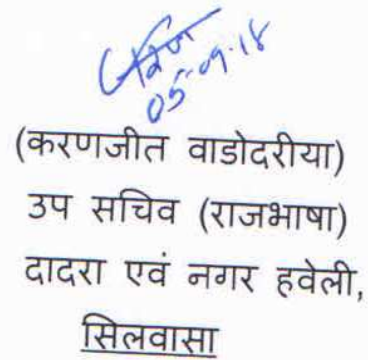 05-09-18
(करणजीत वाडोदरीया)
उप सचिव (राजभाषा)
दादरा एवं नगर हवेली,
सिलवासा